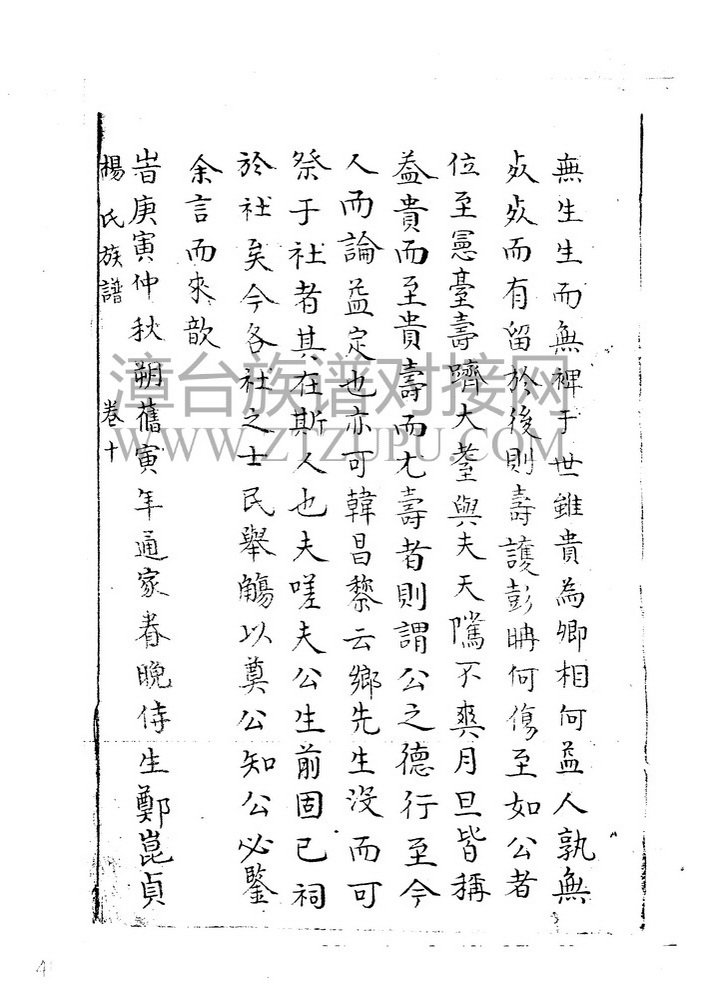 無生生而無裨于世雖貴為卿相何益人孰無
㱕㱕而有留於後則壽護彭聃何傷至如公者
位至憲臺壽躋大耋與夫天隲不爽月旦皆稱
益貴而至貴壽而尤壽者則謂公之德行至今
人而論益定也亦可韓昌黎云鄉先生沒而可
祭于社者其在斯人也夫嗟夫公生前固已祠
於社矣今各社之士民舉觴以奠公知公必鑒
余言而來歆
旹庚寅仲秋朔舊寅年通家眷晚侍生鄭崑貞
楊氏族譜 卷十
漳台族谱对接网
WWW.ZTZUPU.COM
4